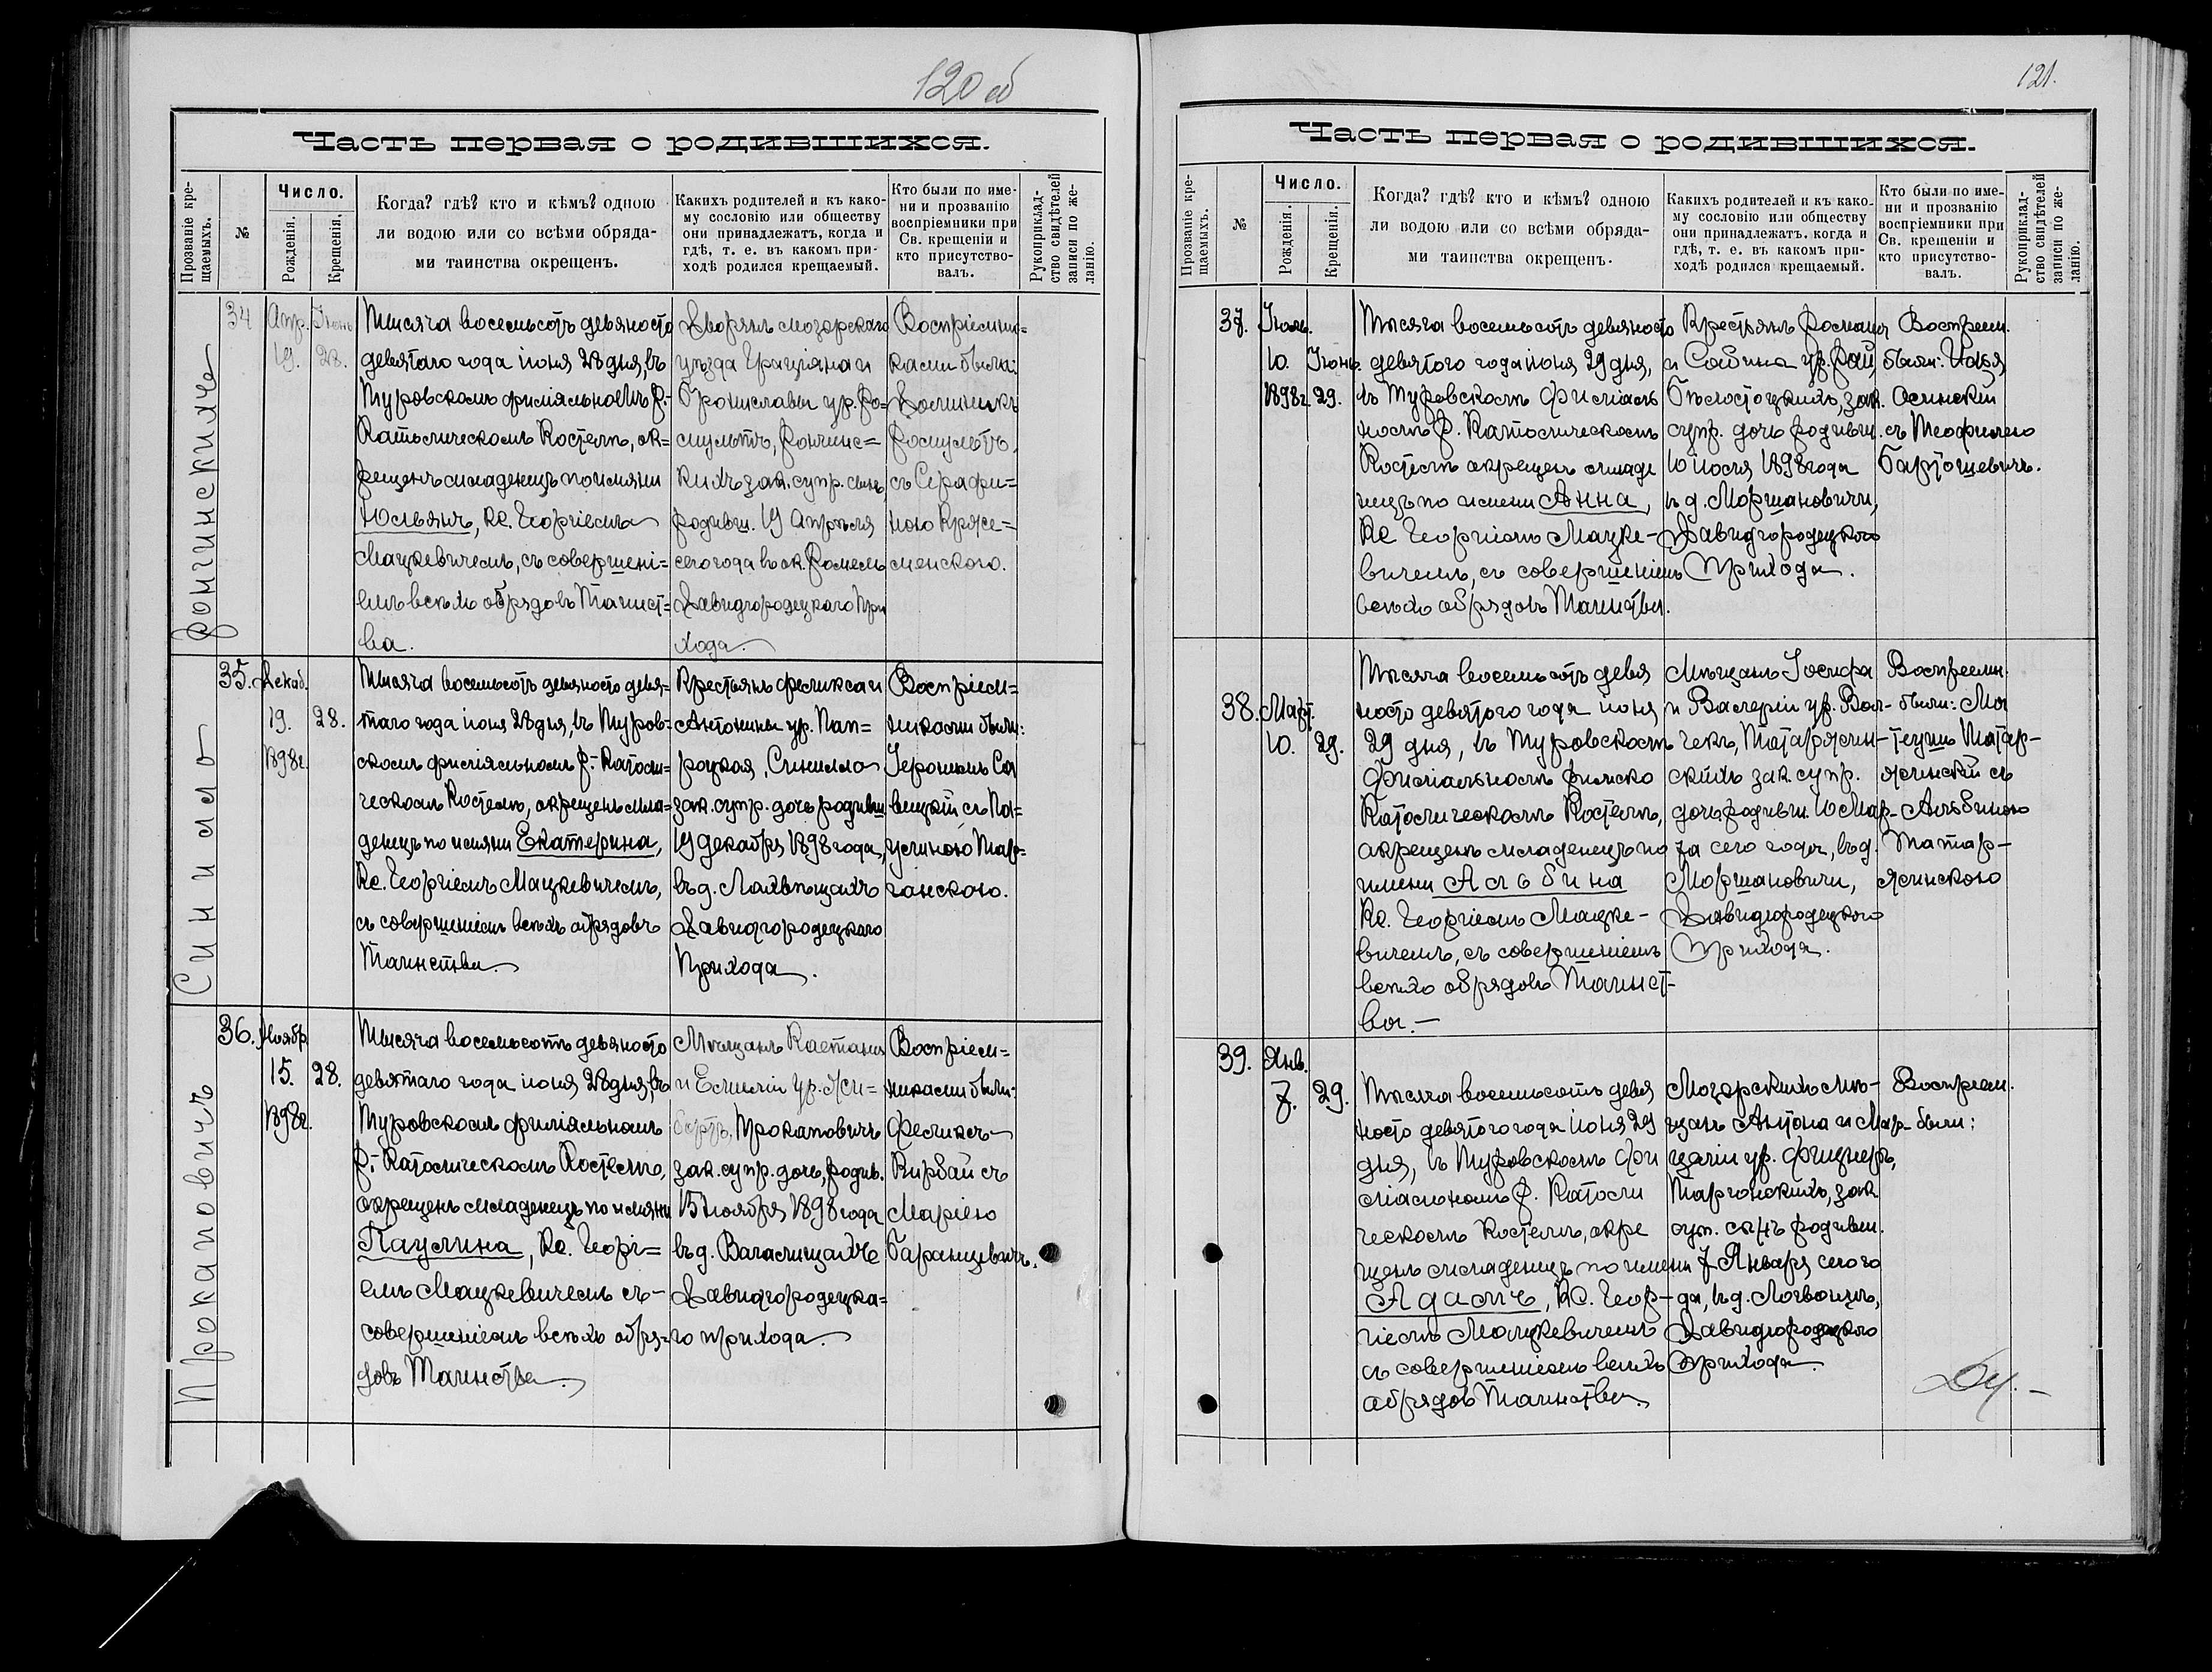 120 об
Часть первая о родившихся.
Прозваніе кре-
щаемыхъ.
№
Число.
Рожденія.
Крещенія.
Когда? гдѣ? кто и кѣмъ? одною
ли водою или со всѣми обряда-
ми таинства окрещенъ.
Какихъ родителей и къ како-
му сословію или обществу
они принадлежатъ, когда и
гдѣ, т. е. въ какомъ при-
ходѣ родился крещаемый.
Кто были по име-
ни и прозванію
воспріемники при
Св. крещеніи и
кто присутство-
валъ.
Рукоприклад-
ство свидѣтелей
записи по же-
ланію.
34
Апр.
19.
Іюнь
28.
Тысяча восемьсотъ девяносто
девятаго года іюня 28 дня, въ
Туровскомъ филіяльномъ Р.-
Католическомъ Костелѣ, ок-
рещенъ младенецъ по имяни
Юльянъ, Кс. Георгіемъ
Мацкевичемъ, съ совершені-
емъ всѣхъ обрядовъ Таинст-
ва.
Дворянъ мозырскаго
уѣзда Граціяна и
Брониславы ур. Ро-
мультъ,
кихъ зак. супр. сынъ
родивш. 19 Апрѣля
сего года въ ок.
Давидгородецкаго При
хода.
Воспріемни=
ками были:
Ромультъ,
съ Серафи=
ною
менского.
Синило
35.
Декаб.
19.
1898 г.
28.
Тысяча восемьсотъ девяносто девя=
таго года іюня 28 дня, въ Туров=
скомъ филіяльномъ Р.-Католи=
ческомъ Костелѣ, окрещенъ мла=
денецъ по имяни Екатерина,
Кс. Георгіемъ Мацкевичемъ,
съ совершеніемъ всѣхъ обрядовъ
Таинства.
Крестьянъ Феликса и
Антонины ур. Пап=
роцкая, Синилло
зак. супр. дочь родивш.
19 Декабря 1898 года,
въ д.
Давидгородецкаго
Прихода.
Воспріем=
никами были:
Іеронимъ Са
вецкій съ Па=
улиною Тар=
гонскою.
Прокаповичъ
36.
Ноябр
15.
1898 г.
28.
Тысяча восемьсотъ девяносто
девятаго года іюня 28 дня, въ
Туровскомъ филіяльномъ
Р.-Католическомъ Костелѣ,
окрещенъ младенецъ по имяни
Паулина, Кс. Георгі=
емъ Мацкевичемъ съ-
совершеніемъ всѣхъ обря-
довъ Таинства.
Мѣщанъ Каетана
и Емиліи ур.
Прокаповичъ
зак. супр. дочь, родив.
15 ноября 1898 года
въ д.
Давидгородецка=
го прихода.
Воспріем=
никами были:
Феликсъ
Кирбай съ
Маріею
Баранцевичъ.
121.
Часть первая о родившихся.
Прозваніе кре-
щаемыхъ.
№
Число.
Рожденія.
Крещенія.
Когда? гдѣ? кто и кѣмъ? одною
ли водою или со всѣми обряда-
ми таинства окрещенъ.
Какихъ родителей и къ како-
му сословію или обществу
они принадлежатъ. когда и
гдѣ, т. е. въ какомъ при-
ходѣ родился крещаемый.
Кто были по име-
ни и прозванію
воспріемники при
Св. крещеніи и
кто присутство-
валъ.
Рукоприклад-
ство свидѣтелей
записи по же-
ланію.
37.
Іюль.
10.
1898 г.
Іюнь.
29.
Тысяча восемьсотъ девяносто
девятого года іюня 29 дня,
въ Туровскомъ Филіаль
номъ Р. Католическомъ
Костелѣ окрещенъ младе
нецъ по имени Анна,
Кс Георгіемъ Мацке-
вичемъ, съ совершеніемъ
всѣхъ обрядовъ Таинства.
Крестьянъ Романа
и Сабина ур. Рай,
Бѣлостоцкихъ, зак.
супр. дочь родивш.
10 Іюля 1898 года
въ д. Моршановичи,
Давидгородецкого
Прихода.
Воспреем.
были: Илья
Осинскій
съ Теофилею
Бартошевичъ.
38.
Март.
10.
29.
Тысяча восемьсотъ девя
носто девятого года іюня
29 дня, въ Туровскомъ
Филіальномъ Римско
Католическомъ Костелѣ,
окрещенъ младенецъ по
имени Альбина
Кс. Георгіемъ Мацке-
вичемъ, съ совершеніемъ
всѣхъ обрядовъ Таинст-
ва.-
Мѣщанъ Іосифа
и Валеріи ур. Вол-
чекъ, Татаржин-
скихъ зак. супр.
дочь, родивш. 10 Мар-
та сего года, въ д.
Моршановичи,
Давидгородецкого
Прихода.
Воспреемн.
были: Ма
теушъ Татар-
жинскій съ
Альбиною
Татар-
жинскою
39.
Янв.
7.
29.
Тысяча восемьсотъ девя
носто девятого года іюня 29
дня, въ Туровскомъ Фи
ліальномъ Р. Католи
ческомъ Костелѣ, окре
щенъ младенецъ по имени
Адамъ, Кс. Геор-
гіемъ Мацкевичемъ
съ совершеніемъ всѣхъ
обрядовъ Таинства.
Мозырскихъ мѣ-
щанъ Антона и Мар-
целіи ур. Фицнеръ,
Таргонскихъ, зак
суп. сынъ родивш.
7 Января сего го
да, въ д.
Давидгородецкого
Прихода.
Воспреем.
были: